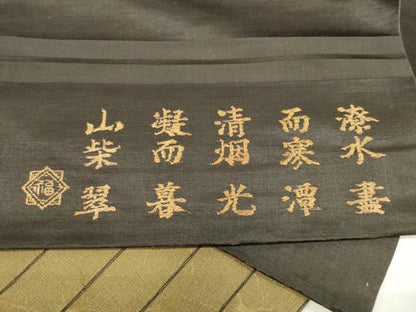 潦水盡
而寒潭
清烟光
凝而暮
山柴翠
福